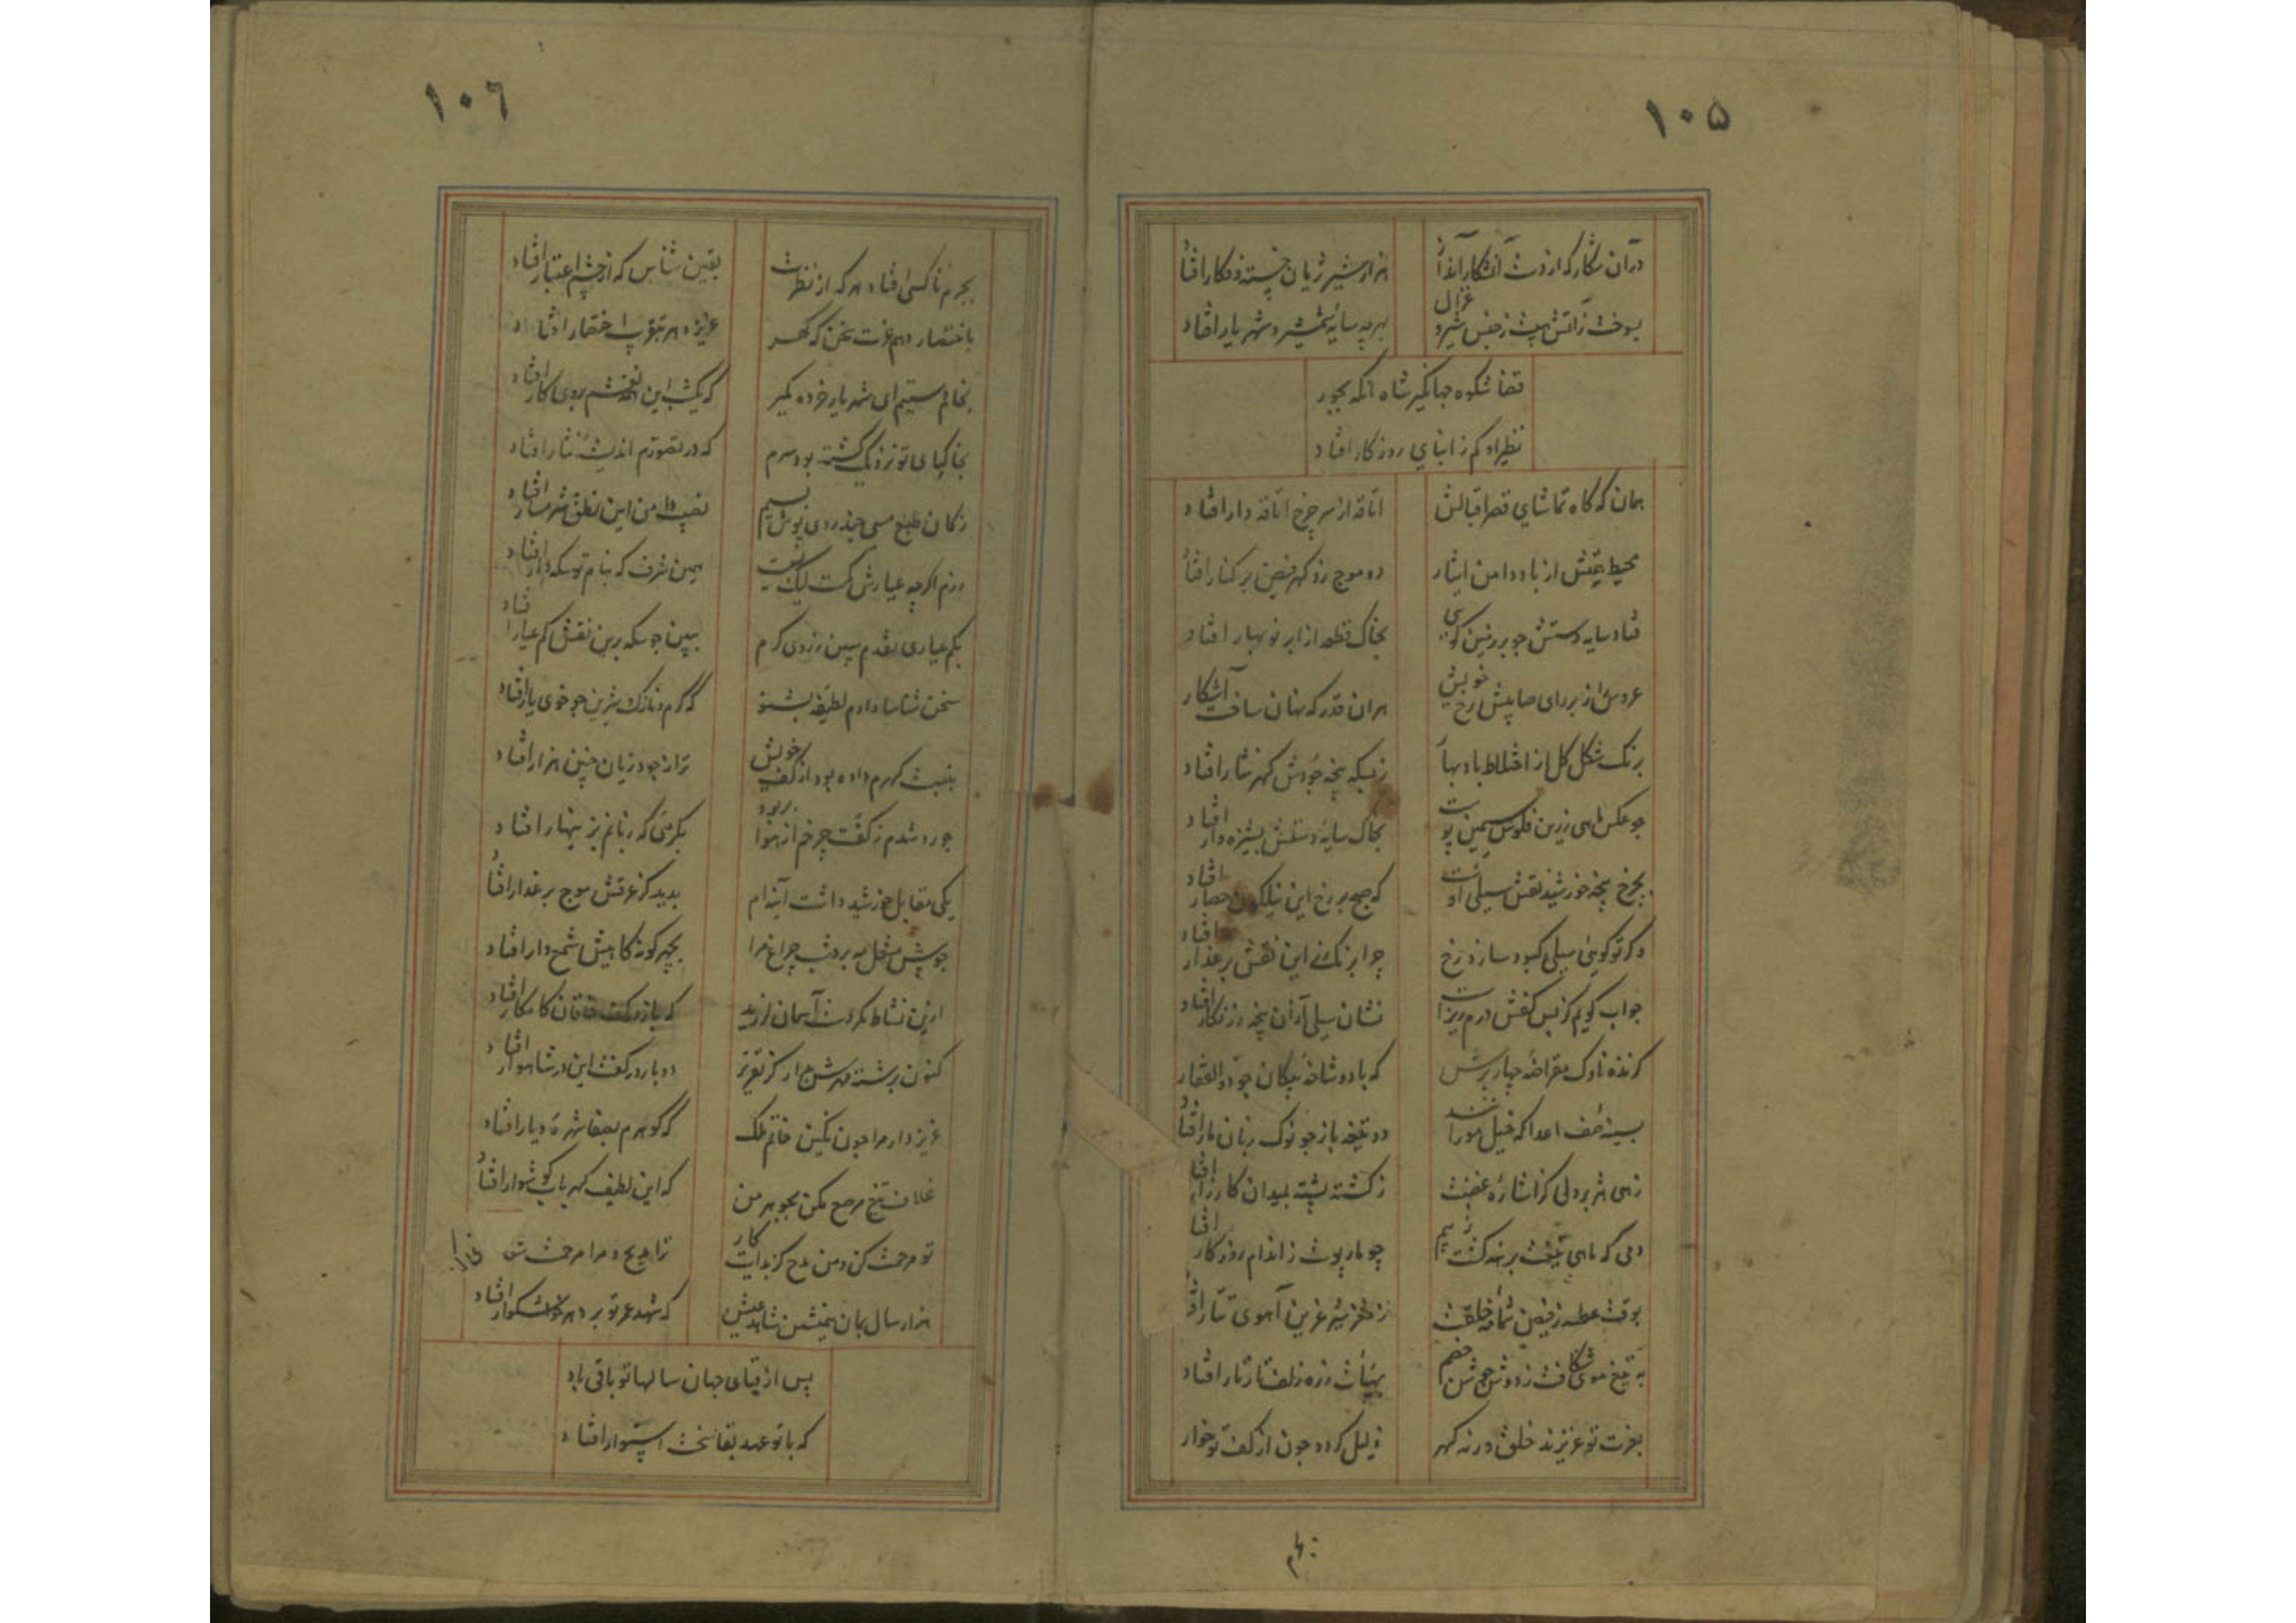 ۱۰۵
در آن شکار که از دست آشکار انداز
هزار شیر ژیان خسته و فکار افتاد
بسوخت ز آتش هیبت ز جنس شیر و غزال
بهر چه سایه شمشیر شهریار افتاد
قضا شکوه جهانگیر شاه آنکه بجود
نظیر او کم ز ابنای روزگار افتاد
همان که گاه تماشای قصر اقبالش
اتاقه از سر چرخ اتاقه دار افتاد
محیط همتش از باد دامن ایثار
دو موج زد گهر فیض بر کنار افتاد
فتاد سایه دستش چو بر زمین گویی
بخاک قطره از ابر نوبهار افتاد
عروس از برای صا پیش رخ خویش
هر آن قدر که نهان ساخت آشکار
برنگ شکل گل از اختلاط باد بهار
ز بسکه پنجه جودش گهر نثار افتاد
چو عکس ماهی زرین فلوس سیمین پوست
بخاک سایه دستش پشیزه دار افتاد
بچرخ پنجه خورشید نقش سیلی اوست
که صبح بر رخ این نیلگون حصار افتاد
وگر تو گویی سیلی کبود سازد رخ
چرا برنگ این نقش بر عذار افتاد
جواب گویم کز بس کفش درم ریز است
نشان سیلی از آن پنجه زرنگار افتاد
گزنده ناوک مقراضه چار پرش
که با دو شاخه پیکان چو ذوالفقار
بسینه صف اعدا که خیل مورانند
دو نیمه باز چو نوک زبان مار افتاد
زهی هژبر دلی کز اشاره غضبت
ز کشته پشته بمیدان کارزار افتاد
دمی که ماهی تیغت برهنه گشت ز بیم
چو مار پوست ز اندام روزگار افتاد
بوقت عطسه ز فیض شمامه خلقت
ز مغز شیر عرین آهوی تتار افتاد
به تیغ موی شکافت ز دوش خصم
بهیأت زره زلف تار تار افتاد
بعزت تو عزیزند خلق ورنه گهر
ذلیل گردد چون از کف تو خوار
بجرم
۱۰۶
بجرم ناکسی افتاد هر که از نظرت
یقین شناس که از چشم اعتبار افتاد
باختصار دهم عزت سخن که گهر
عزیز دهر بتقریب اختصار افتاد
بخاتم ستم ای شهریار خرده مگیر
که یکشب این همه نقشم بروی کار افتاد
بخاکپای تو نزدیک گشته بود سرم
که در تصورم اندیشه نثار افتاد
ز کان طبع مسی چند روی پوش بسیم
نصیب دامن این نطق شرمسار افتاد
درم اگرچه عیارش کمست لیک نیست
بهمین شرف که بنام تو سکه دار افتاد
بکم عیاری نقدم مبین ز روی کرم
ببین چو سکه برین نقش کم عیار افتاد
سخن شناسا دارم لطیفه بشنو
که گرم و نازک شیرین چو خوی یار افتاد
بنسبت گهرم داده بود از کف خویش
ترا ز جود زیان چنین هزار افتاد
چو رد شدم ز کفت چرخم از هوا بربود
بگرمی که زبانم بزینهار افتاد
یکی مقابل خورشید داشت آینه‌ام
بدید کز عرقش موج بر عذار افتاد
چو پیش مشعل مه برد شب چراغ مرا
بچهر گونه کاهیش شمع دار افتاد
ازین نشاط مگر دست آسمان لرزید
که باز در کف خاقان کامگار افتاد
کنون برشته مهرش درآر کز تقریر
دوباره در کفت این در شاهوار افتاد
عزیز دار مرا چون نگین خاتم ملک
که گوهرم بصفا شهره دیار افتاد
غلاف تیغ مرصع مکن بجوهر من
که این لطیف گهر باب گوشوار افتاد
تو مرحمت کن و من مدح کز بدایت کار
ترا مدیح و مرا مرحمت شعار افتاد
هزار سال بمان همنشین شاهد عیش
که شهد عمر تو بر دهر خوشگوار افتاد
پس از فنای جهان سالها تو باقی باد
که با تو عهد بقا سخت استوار افتاد